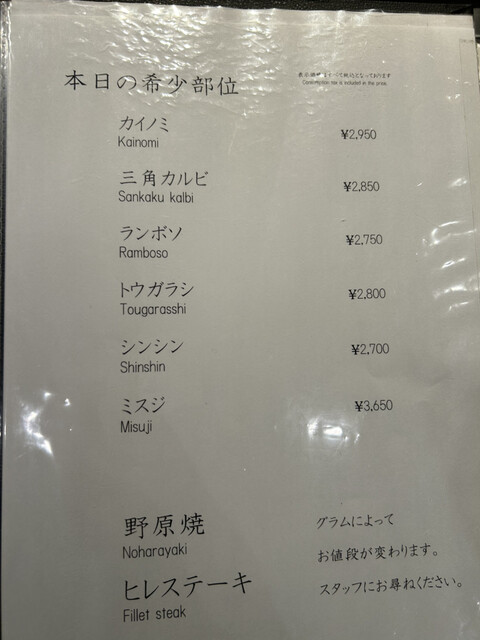 本日の希少部位
表示価格はすべて税込となっております
Consumption tax is included in the price.
カイノミ ¥2,950
Kainomi
三角カルビ ¥2,850
Sankaku kalbi
ランボソ ¥2,750
Ramboso
トウガラシ ¥2,800
Tougarasshi
シンシン ¥2,700
Shinshin
ミスジ ¥3,650
Misuji
野原焼 グラムによって
Noharayaki お値段が変わります。
ヒレステーキ スタッフにお尋ねください。
Fillet steak